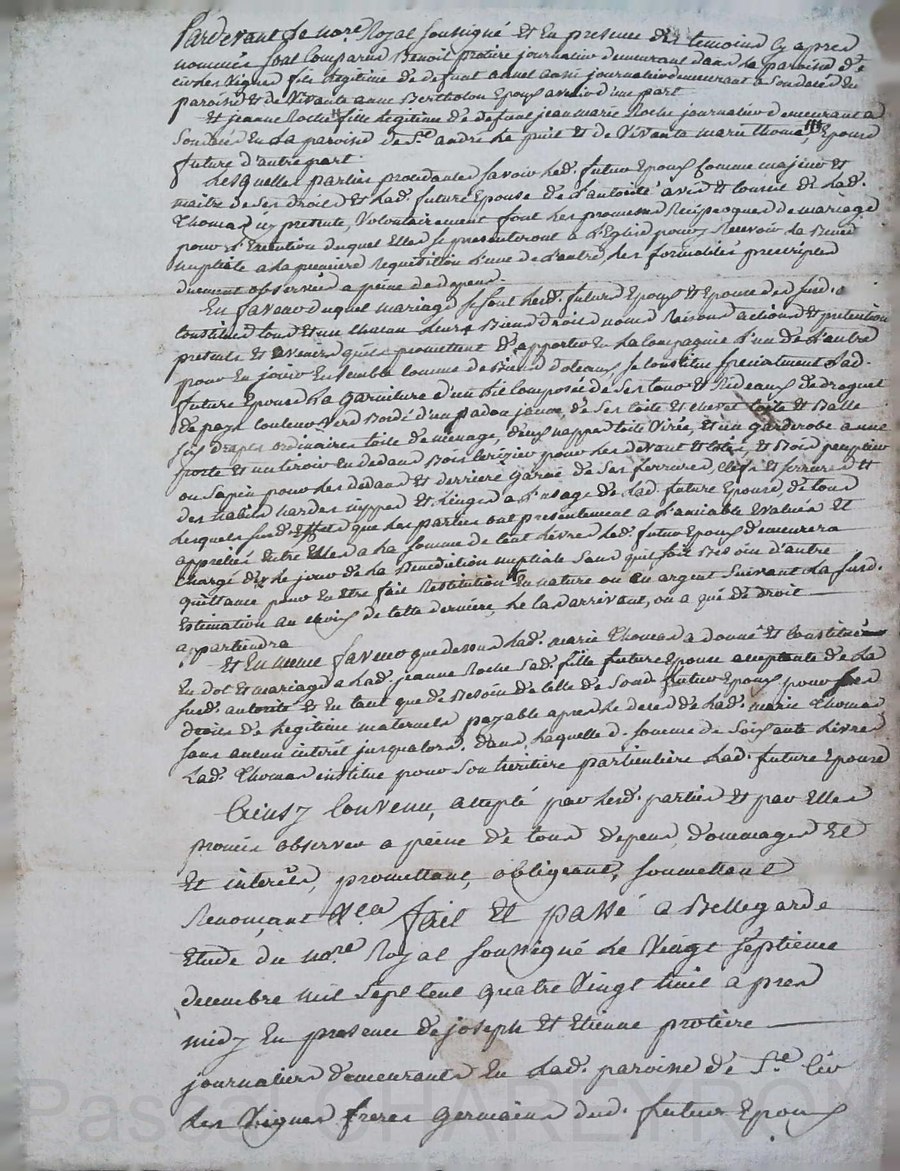 Pardevant le no.re Royal soussigné et en presence des temoins cy apres
nommés sont comparus Benoit protiere journalier demeurant dans la paroisse de
civ les vignes fils legitime de defunt aussi journalier demeurant a
paroisse et de vivante anne Bertholon Epoux avenir d'une part
Et jeanne Roche fille legitime de defunt jean marie Roche journalier demeurant a
en la paroisse de S.t andré le puit et de vivante marie thomas, Epouse
future d'autre part.
Lesquelles parties procedantes savoir led. futur Epoux comme majeur et
maitre de ses droits et lad. future Epouse de l'autorité avis et conseil de lad.
Thomas icy presente, volontairement font les promesses Reciproques de mariage
pour l'Execution duquel Elles se presenteront a l'Eglise pour y Recevoir la Bened.
nuptiale a la premiere Requisition l'une de l'autre, les formalités prescriptes
dument observées a peine de depens.
En faveur duquel mariage se sont lesd. futurs Epoux et Epouse des susd.
constitués tous et un chacun leurs Biens droits noms Raisons actions et pretentions
presents et avenirs qu'ils promettent d'apporter en la compagnie l'un de l'autre
pour En jouir Ensemble comme de Biens dotaux, se constitue specialement lad.
future Epouse la garniture d'un lit composée de ses tour et Rideaux de droguet
de pays couleur verd Bordé d'un padou jaune, de ses coite et chevet toile et Balle
six draps ordinaires toile de menage, deux nappes toile virée, et un garderobe a une
porte et un tiroir en dedans Bois cerizier pour les devant et cotés, et Bois peuplier
ou sapin pour les dedans et derriere garni de ses ferrures, clefs et serrures et
des habits hardes nippes et linges a l'usage de lad. future Epouse, de tous
lesquels susd. Effets que les parties ont presentement a l'amiable Evalués et
appretiés entre Elles a la somme de cent livres led. futur Epoux demeurera
chargé dès le jour de la Benediction nuptiale sans qu'il soit Besoin d'autre
quittance pour en Etre fait Restitution En nature ou en argent suivant la susd.
Estimation au choix de cette derniere, le cas arrivant, ou a qui de droit
appartiendra
et En meme faveur que dessus lad. marie Thomas a donné et constitué
En dot et mariage a lad. jeanne Roche sad. fille future Epouse acceptante de la
susd. autorité et en tant que de Besoin de celle de sond. futur Epoux pour ses
droits de legitime maternels payable apres le deces de lad. marie Thomas
sans aucun interêt jusqualors. dans laquelle d. somme de soixante livres
lad. Thomas institue pour son heritiere particuliere lad. future Epouse
Ainsy convenu, accepté par lesd. parties et par Elles
promis observer a peine de tous depens, dommages Et
Et interêts, promettant, obligeant, soumettant
Renonçant &.a fait et passé a Bellegarde
Etude du no.re Royal soussigné le vingt septieme
decembre mil sept cent quatre vingt huit apres
midy En presence de joseph et Etienne protiere
journaliers demeurants En lad. paroisse de S.t civ
les vignes freres germains dud. futur Epoux
Pascal CHAREYRON